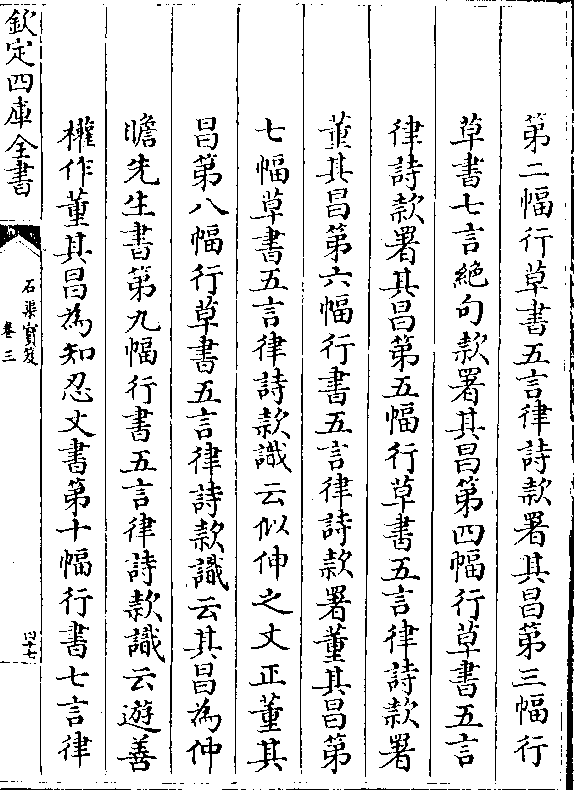 第二幅行草書五言律詩款署其昌第三幅行
草書七言絶句款署其昌第四幅行草書五言
律詩款署其昌第五幅行草書五言律詩款署
董其昌第六幅行書五言律詩款署董其昌第
七幅草書五言律詩款識云似伸之丈正董其
昌第八幅行草書五言律詩款識云其昌為仲
瞻先生書第九幅行書五言律詩款識云遊善
權作董其昌為知忍丈書第十幅行書七言律
欽定四庫全書
石渠寶笈
卷三
四十七